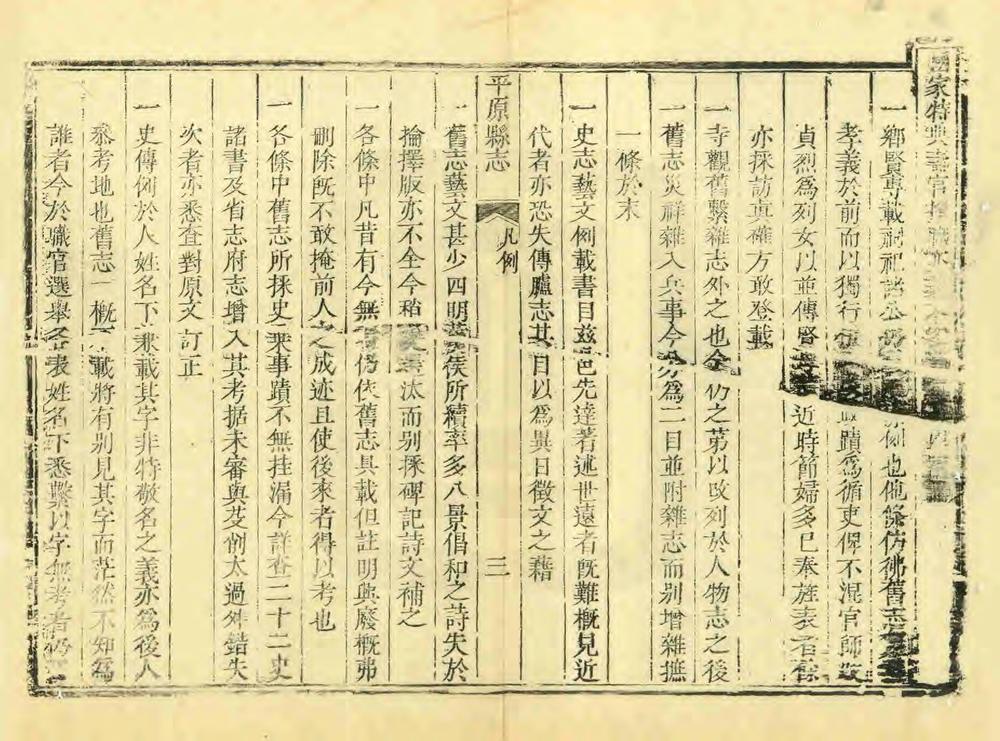 國家特典
一鄉賢專載祠祀諸公例也他條仿彿舊志
孝義於前而以獨行蹟為循吏俾不混官師
貞烈為列女以並傳賢近時節婦多已奉旌表者
亦採訪真確方敢登載
一寺觀舊繫雜志外之也今仍之第以攺列於人物志之後
一舊志災祥雜入兵事今分為二目並附雜志而别增雜摭
一條於末
一史志藝文例載書目兹邑先達著述世遠者旣難概見近
代者亦恐失傳臚志其目以為異日徵文之藉
平原縣志
凡例
三
一舊志藝文甚少四明侯所續率多八景倡和之詩失於
掄擇版亦不全今稍汰而别採碑記詩文補之
一各條中凡昔有今無仍依舊志具載但註明興廢概弗
刪除旣不敢掩前人之成迹且使後來者得以考也
一各條中舊志所採史乘事蹟不無挂漏今詳查二十二史
諸書及省志府志增入其考据未審與芟削太過舛錯失
次者亦悉查對原文訂正
一史傳例於人姓名下兼載其字非特敬名之義亦為後人
叅考地也舊志一概不載將有别見其字而茫然不知為
誰者今於職官選舉各表姓名下悉繫以字無考者仍